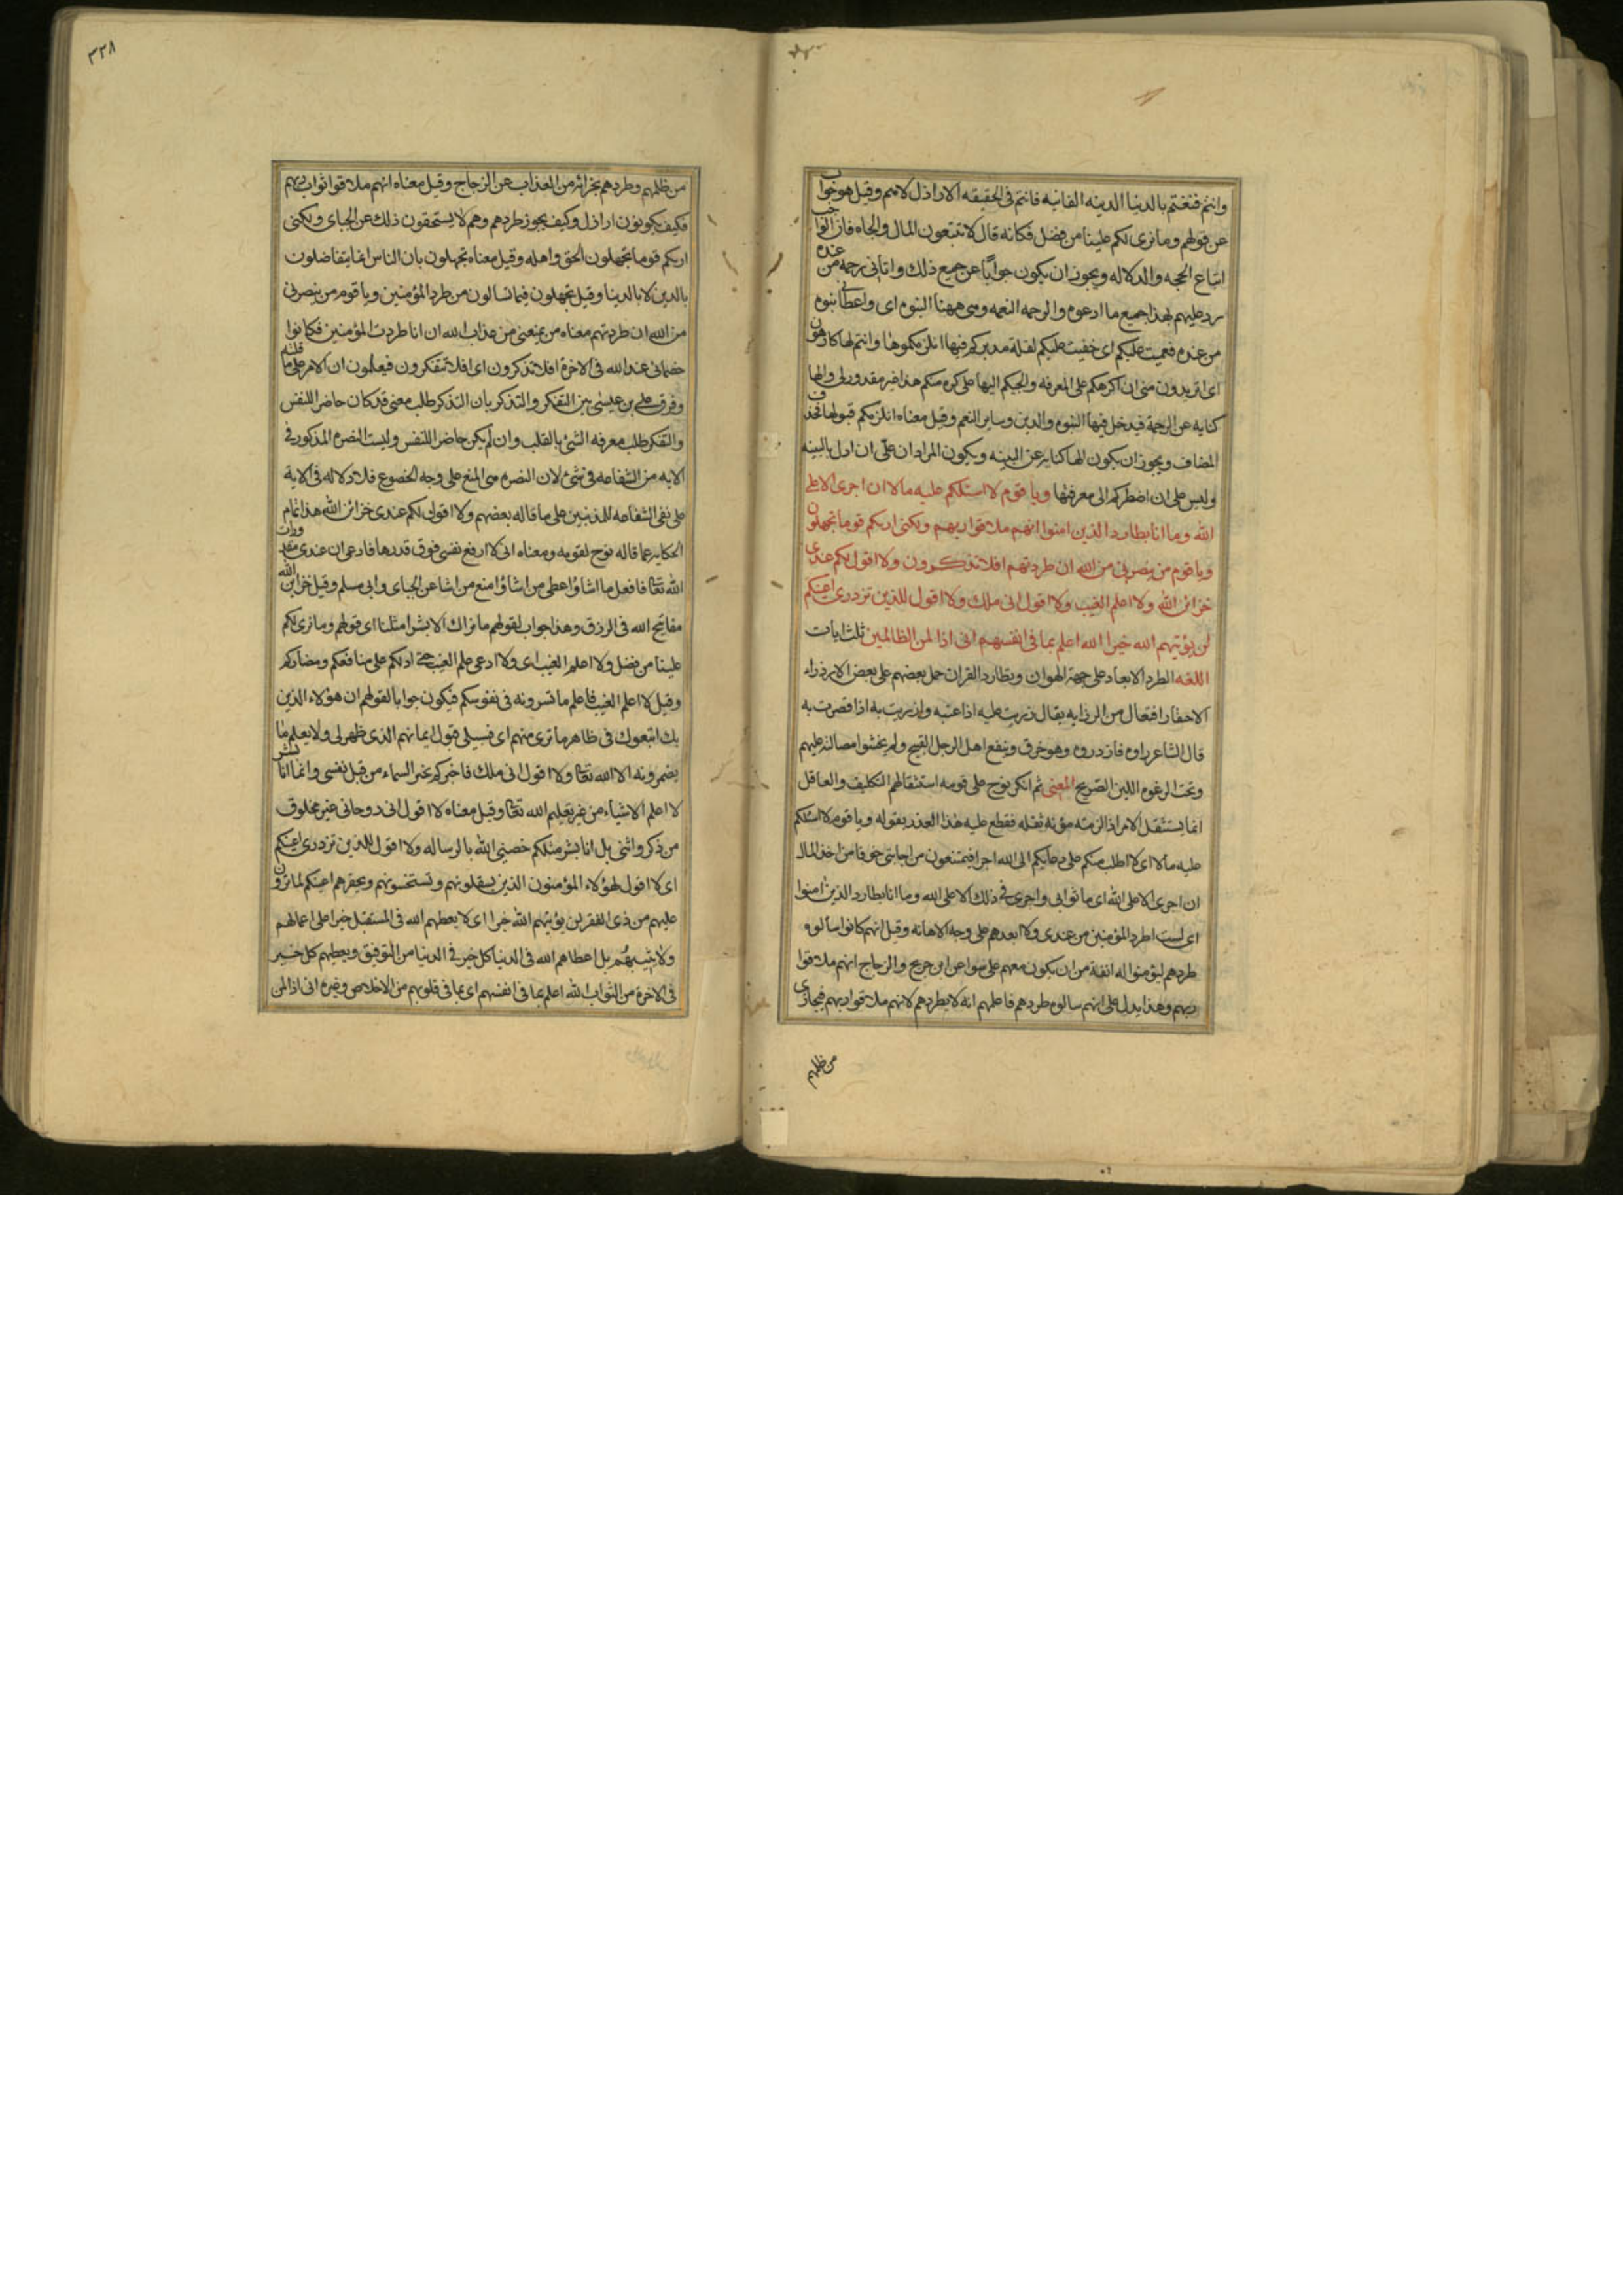 وانتم فتنتم بالدنیا الدنیه الفانیه فانتم فی الحقیقه الاراذل لا هم وقیل هو جواب
عن قولهم وما نری لکم علینا من فضل فکانه قال لا تتبعون المال والجاه فان الواجب
اتباع الحجه والدلاله ویجوز ان یکون جوابا عن جمیع ذلک واتانی رحمه من عنده
رد علیهم بهذا جمیع ما ادعوه والرحمه النعمه وهی ههنا النبوه ای واعطانی نبوه
من عنده فعمیت علیکم ای خفیت علیکم لقله تدبرکم فیها انلزمکموها وانتم لها کارهون
ای اتریدون منی ان اکرهکم علی المعرفه والجئکم الیها علی کره منکم هذا غیر مقدور لی والها
کنایه عن الرحمة فیدخل فیها النبوه والدین وسایر النعم وقیل معناه انلزمکم قبولها فحذف
المضاف ویجوز ان یکون الها کنایه عن البینه ویکون المراد ان علی ان ادل بالبینه
ولیس علی ان اضطرکم الی معرفتها ویا قوم لا اسئلکم علیه مالا ان اجری الا علی
الله وما انا بطارد الذین امنوا انهم ملاقوا ربهم ولکنی اریکم قوما تجهلون
ویا قوم من ینصرنی من الله ان طردتهم افلا تذکرون ولا اقول لکم عندی
خزائن الله ولا اعلم الغیب ولا اقول انی ملک ولا اقول للذین تزدری اعینکم
لن یؤتیهم الله خیرا الله اعلم بما فی انفسهم انی اذا لمن الظالمین ثلث ایات
اللغه الطرد الابعاد علی جهة الهوان ویطارد القران حمل بعضهم علی بعض الازدراء
الاحتقار افتعال من الزرایه یقال زریت علیه اذا عتبه وازریت به اذا قصرت به
قال الشاعر راوه فازدروه وهو خرق وینفع اهل الرجل القبیح ولم یخشوا مصالته علیهم
وتحت الرغوه اللبن الصریح المعنی ثم انکر نوح علی قومه استثقالهم التکلیف والعاقل
انما یستثقل الامر اذا لزمته مؤنه ثقله فقطع علیه هذا العذر بقوله ویا قوم لا اسئلکم
علیه مالا ای لا اطلب منکم علی دعائکم الی الله اجرا فتمتنعون من اجابتی خوفا من اخذ المال
ان اجری الا علی الله ای ما ثوابی واجری فی ذلک الا علی الله وما انا بطارد الذین امنوا
ای لست اطرد المؤمنین من عندی ولا ابعدهم علی وجه الاهانه وقیل انهم کانوا سالوه
طردهم لیؤمنوا له انفة من ان یکون معهم علی سواء عن ابن جریح والزجاج انهم ملاقوا
ربهم وهذا یدل علی انهم سالوه طردهم فاعلمهم انه لا یطردهم لانهم ملاقوا ربهم فیجازی
من ظلمهم
٣٢٨
من ظلمهم وطردهم بجزائه من العذاب عن الزجاج وقیل معناه انهم ملاقوا ثواب ربهم
فکیف یکونون اراذل وکیف یجوز طردهم وهم لا یستحقون ذلک عن الجبای ولکنی
اریکم قوما تجهلون الحق واهله وقیل معناه تجهلون بان الناس انما یتفاضلون
بالدین لا بالدنیا وقیل تجهلون فیما تسالون من طرد المؤمنین ویا قوم من ینصرنی
من الله ان طردتهم معناه من یمنعنی من عذاب الله ان انا طردت المؤمنین فکانوا
خصمائی عند الله فی الاخرة افلا تذکرون ای افلا تتفکرون فیعلمون ان الامر علی ما قلته
وفرق علی بن عیسی بین التفکر والتذکر بان التذکر طلب معنی قد کان حاضر اللنفس
والتفکر طلب معرفه الشئ بالقلب وان لم یکن حاضر اللنفس ولیست النصره المذکور فی
الایه من الشفاعه فی شئ لان النصره هی المنع علی وجه الخضوع فلا دلاله فی الایة
علی نفی الشفاعه للمذنبین علی ما قاله بعضهم ولا اقول لکم عندی خزائن الله هذا تمام
الحکایه عما قاله نوح لقومه ومعناه انی لا ارفع نفسی فوق قدرها فادعی ان عندی مقدورات
الله تعا فافعل ما اشاؤ اعطی من اشاؤ امنع من اشا عن الجبای وابی مسلم وقیل خزاین الله
مفاتیح الله فی الرزق وهذا جواب لقولهم ما نراک الا بشرا مثلنا ای قولهم وما نری لکم
علینا من فضل ولا اعلم الغیب ای ولا ادعی علم الغیب حتی ادلکم علی منافعکم ومضارکم
وقیل لا اعلم الغیب فاعلم ما تسرونه فی نفوسکم فیکون جوابا لقولهم ان هؤلاء الذین
بک اتبعوک فی ظاهر ما تری منهم ای فسبیلی قبول ایمانهم الذی ظهر لی ولا یعلم ما
یضمرونه الا الله تعا ولا اقول انی ملک فاخبرکم بخبر السماء من قبل نفسی وانما انا بشر
لا اعلم الاشیاء من غیر تعلیم الله تعا وقیل معناه لا اقول انی روحانی غیر مخلوق
من ذکر وانثی بل انا بشر مثلکم خصنی الله بالرساله ولا اقول للذین تزدری اعینکم
ای لا اقول لهؤلاء المؤمنون الذین یستقلونهم وتستخسونهم ویحقرهم اعینکم لما ترون
علیهم من ذی الفقر لن یؤتیهم الله خیرا ای لا یعطیهم الله فی المستقبل خیرا علی اعمالهم
ولا یثیبهم بل اعطاهم الله فی الدنیا کل خیر فی الدنیا من التوفیق ویعطیهم کل خیر
فی الاخرة من الثواب الله اعلم بما فی انفسهم ای بما فی قلوبهم من الاخلاص وغیره انی اذا لمن